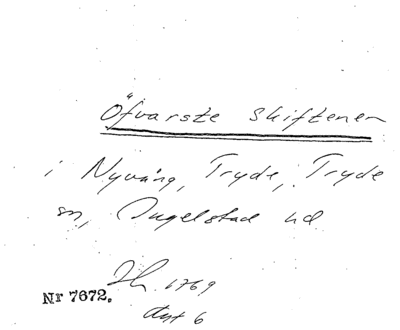 Öfvarste skiftenen
i Nyvång, Tryde, Tryde
sn, Ingelstad hd
1769
Nr 7672.
6